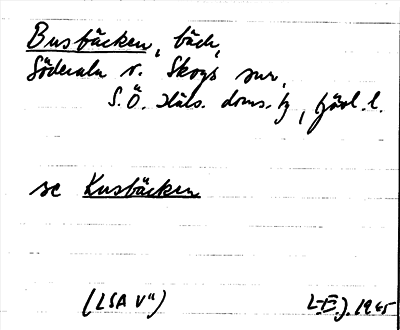 Busbäcken, bäck,
Söderala o. Skogs snr,
S.Ö. Häls. doms. tg, Gävl. l.
se Kusbäcken
(LSA V")
1965